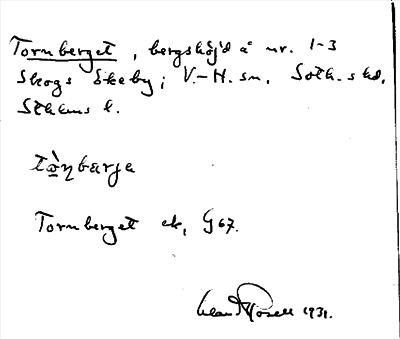 Tornberget, bergshöjd å nr. 1-3
Skogs Ekeby, V.-H. sn. Soth. shd,
Sthlms l.
Tornberget ek, G67.
Rosell 1931.